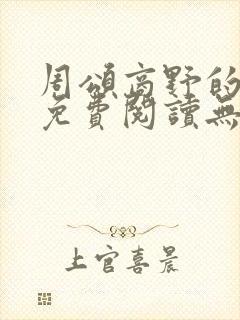 周頌高野的
免費閱讀無
上官喜晨